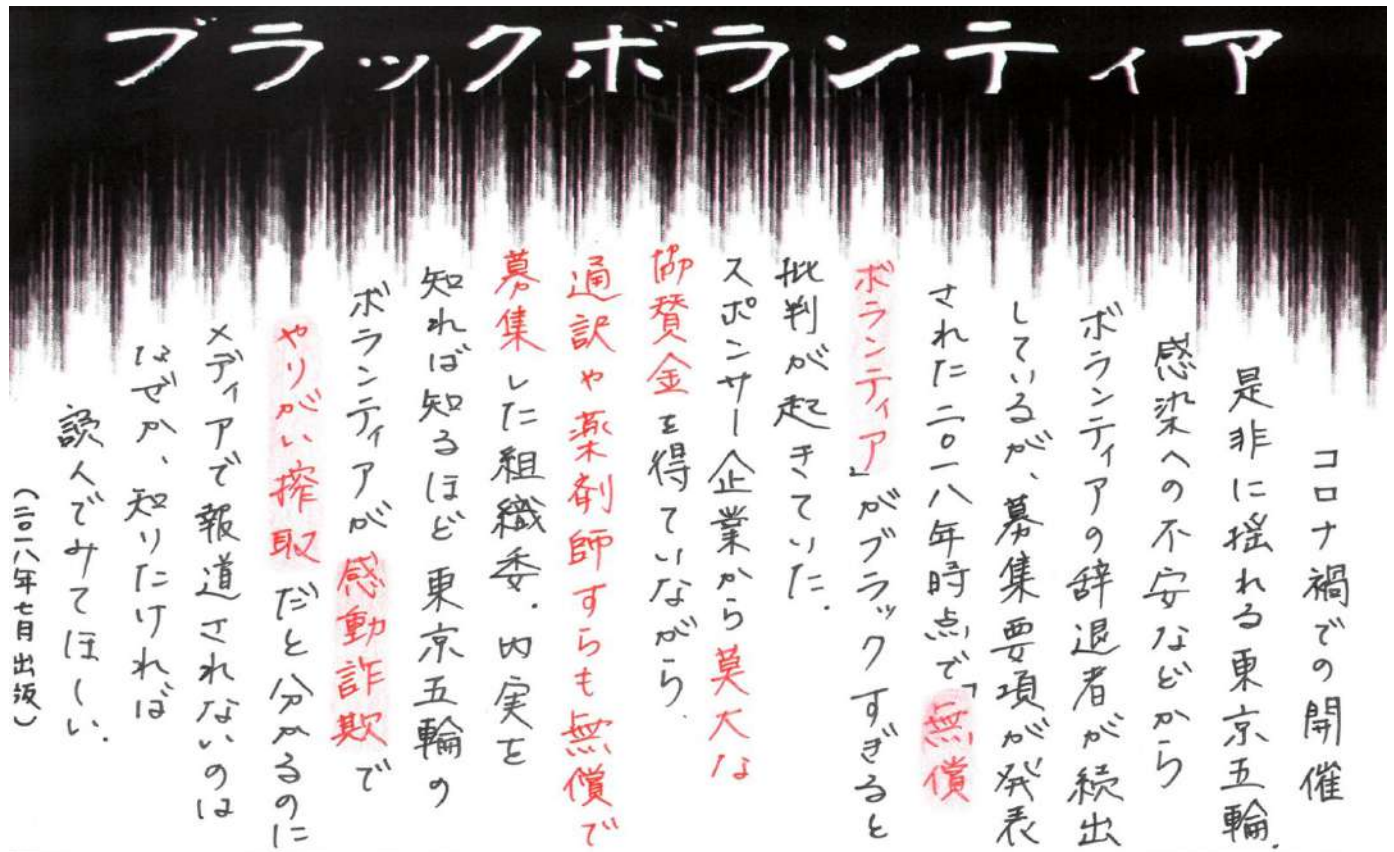 ブラックボランティア
コロナ禍での開催
是非に揺れる東京五輪.
感染への不安などから
ボランティアの辞退者が続出
しているが、募集要項が発表
された二〇一八年時点で「無償
ボランティア」がブラックすぎると
批判が起きていた.
スポンサー企業から莫大な
協賛金を得ていながら.
通訳や薬剤師すらも無償で
募集した組織委.内実を
知れば知るほど東京五輪の
ボランティアが感動詐欺で
やりがい搾取だと分かるのに
メディアで報道されないのは
なぜか、知りたければ
読んでみてほしい.
(二〇一八年七月出版)